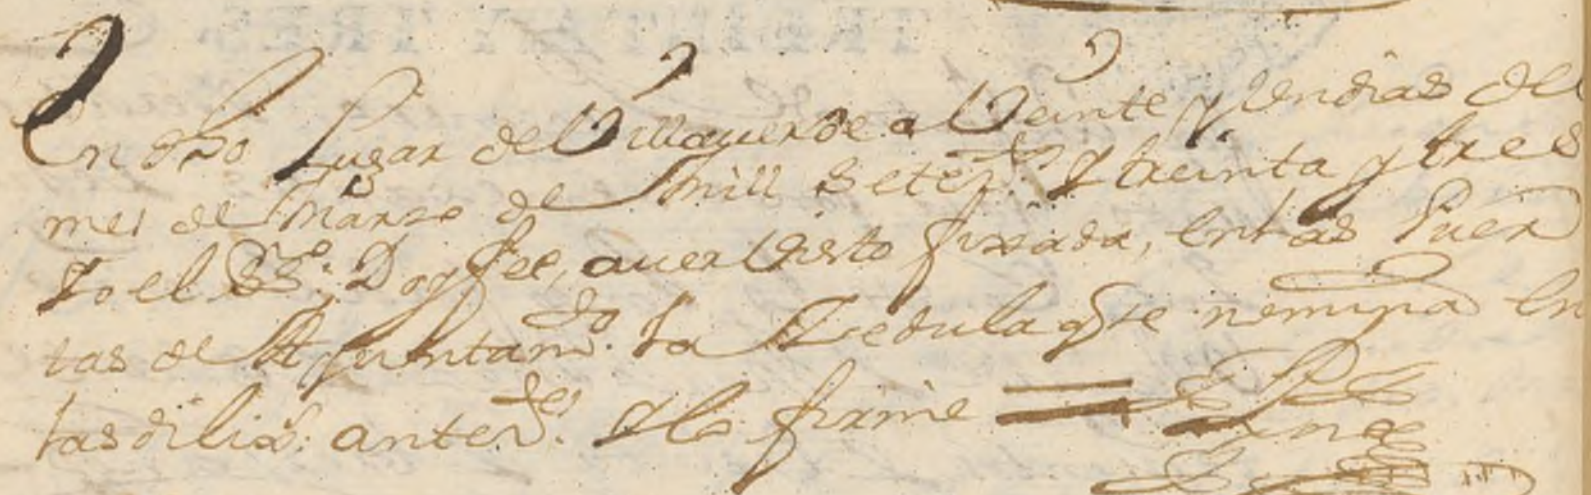 En dho Lugar de Villauerde a Veinte y Un dias del
mes de Marzo de mill setezs. y treinta y tres
Yo el Essno. Doy fee, auer Visto fixada, en las Puer
tas de Ayuntamto. La Zedula que se menziona en
las dilixs. antezdes. y lo firme =